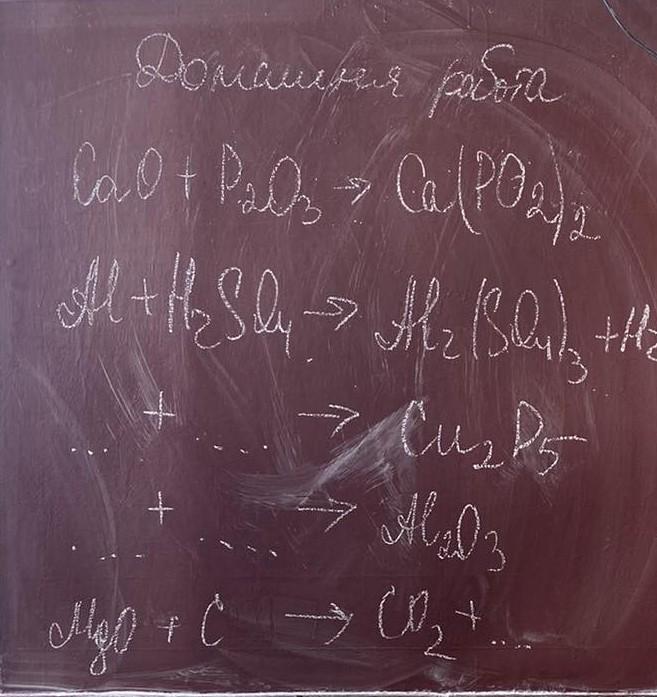 Домашняя работа
CaO + P₂O₃ → Ca(PO₂)₂
Al + H₂SO₄ → Al₂(SO₄)₃ + H₂
... + .... → Cu₂P₅
.... + .... → Al₂O₃
MgO + C → CO₂ + ....